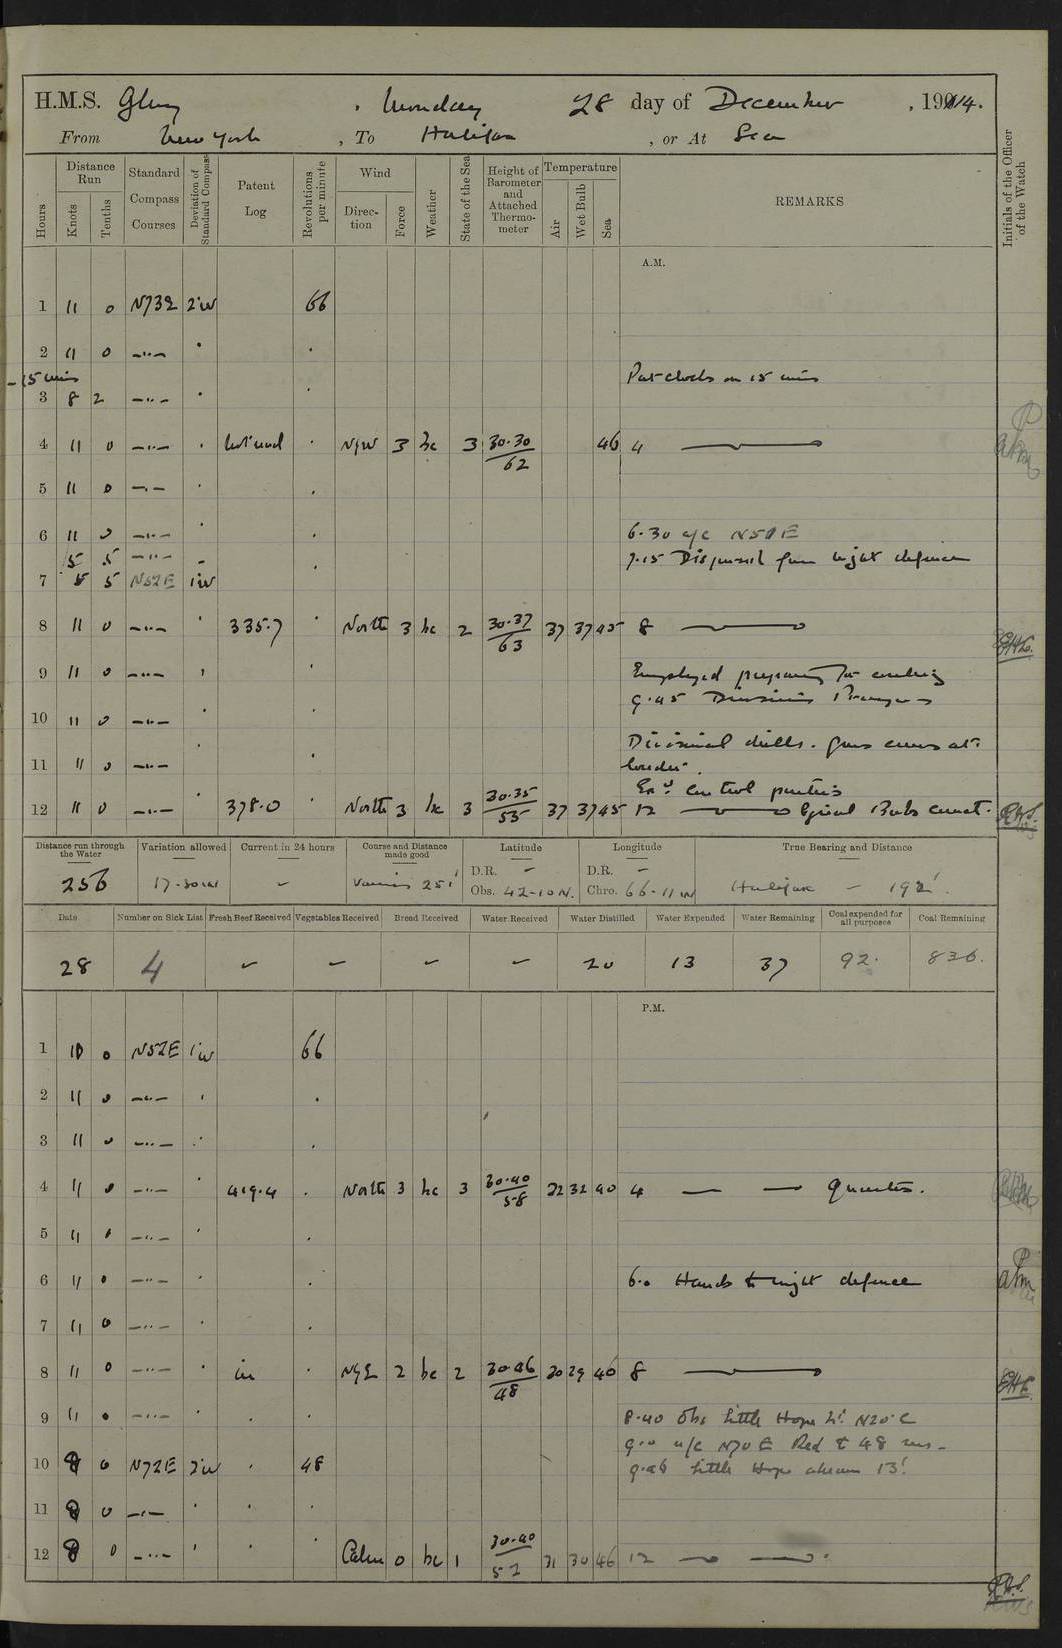 H.M.S. Glory, Monday 28 day of December, 1914.
From New York, To Halifax, or At Sea
Hours
Distance Run
Knots
Tenths
Standard Compass Courses
Deviation of Standard Compass
Patent Log
Revolutions per minute
Wind
Direction
Force
Weather
State of the Sea
Height of Barometer and Attached Thermometer
Temperature
Air
Wet Bulb
Sea
REMARKS
Initials of the Officer of the Watch
A.M.
1 11 0 N73E 2°W 66
2 11 0 —"—
-15 mins Put clocks on 15 mins
3 8 2 —"—
4 11 0 —"— not used NNW 3 bc 3 30.30/62 46 4
5 11 0 —"—
6 11 0 —"— 6.30 a/c N51E
5 5 —"— 7.15 Dispersed from night defence
7 5 5 N52E 1°W
8 11 0 —"— 335.7 North 3 bc 2 30.37/63 37 37 45 8
9 11 0 —"— Employed preparing for coaling
9.45 Divisions Prayers
10 11 0 —"—
Divisional drills. Guns crews at
11 11 0 —"— loader.
Exd Control parties
12 11 0 —"— 378.0 North 3 bc 3 30.35/55 37 37 45 12
Distance run through the Water
Variation allowed
Current in 24 hours
Course and Distance made good
Latitude
Longitude
True Bearing and Distance
256 17-30W – Various 251' D.R. – Obs. 42-10 N. D.R. – Chro. 66-11 W Halifax – 192'.
Date
Number on Sick List
Fresh Beef Received
Vegetables Received
Bread Received
Water Received
Water Distilled
Water Expended
Water Remaining
Coal expended for all purposes
Coal Remaining
28 4 – – – – 20 13 37 92. 836.
P.M.
1 10 0 N52E 1°W 66
2 11 0 —"—
3 11 0 —"—
4 11 0 —"— 419.4 North 3 bc 3 30.40/58 32 32 40 4 — — Quarters.
5 11 0 —"—
6 11 0 —"— 6.0 Hands to night defence
7 11 0 —"—
8 11 0 —"— in 2 bc 2 30.46/48 30 29 40 8
9 11 0 —"— 8.40 Obs Little Hope Lt. N20°E
9.0 a/c N70E Red to 48 revs.
10 8 0 N72E 2°W 48 9.46 Little Hope abeam 13'.
11 8 0 —"—
12 8 0 —"— Calm 0 bc 1 30.40/52 31 30 46 12